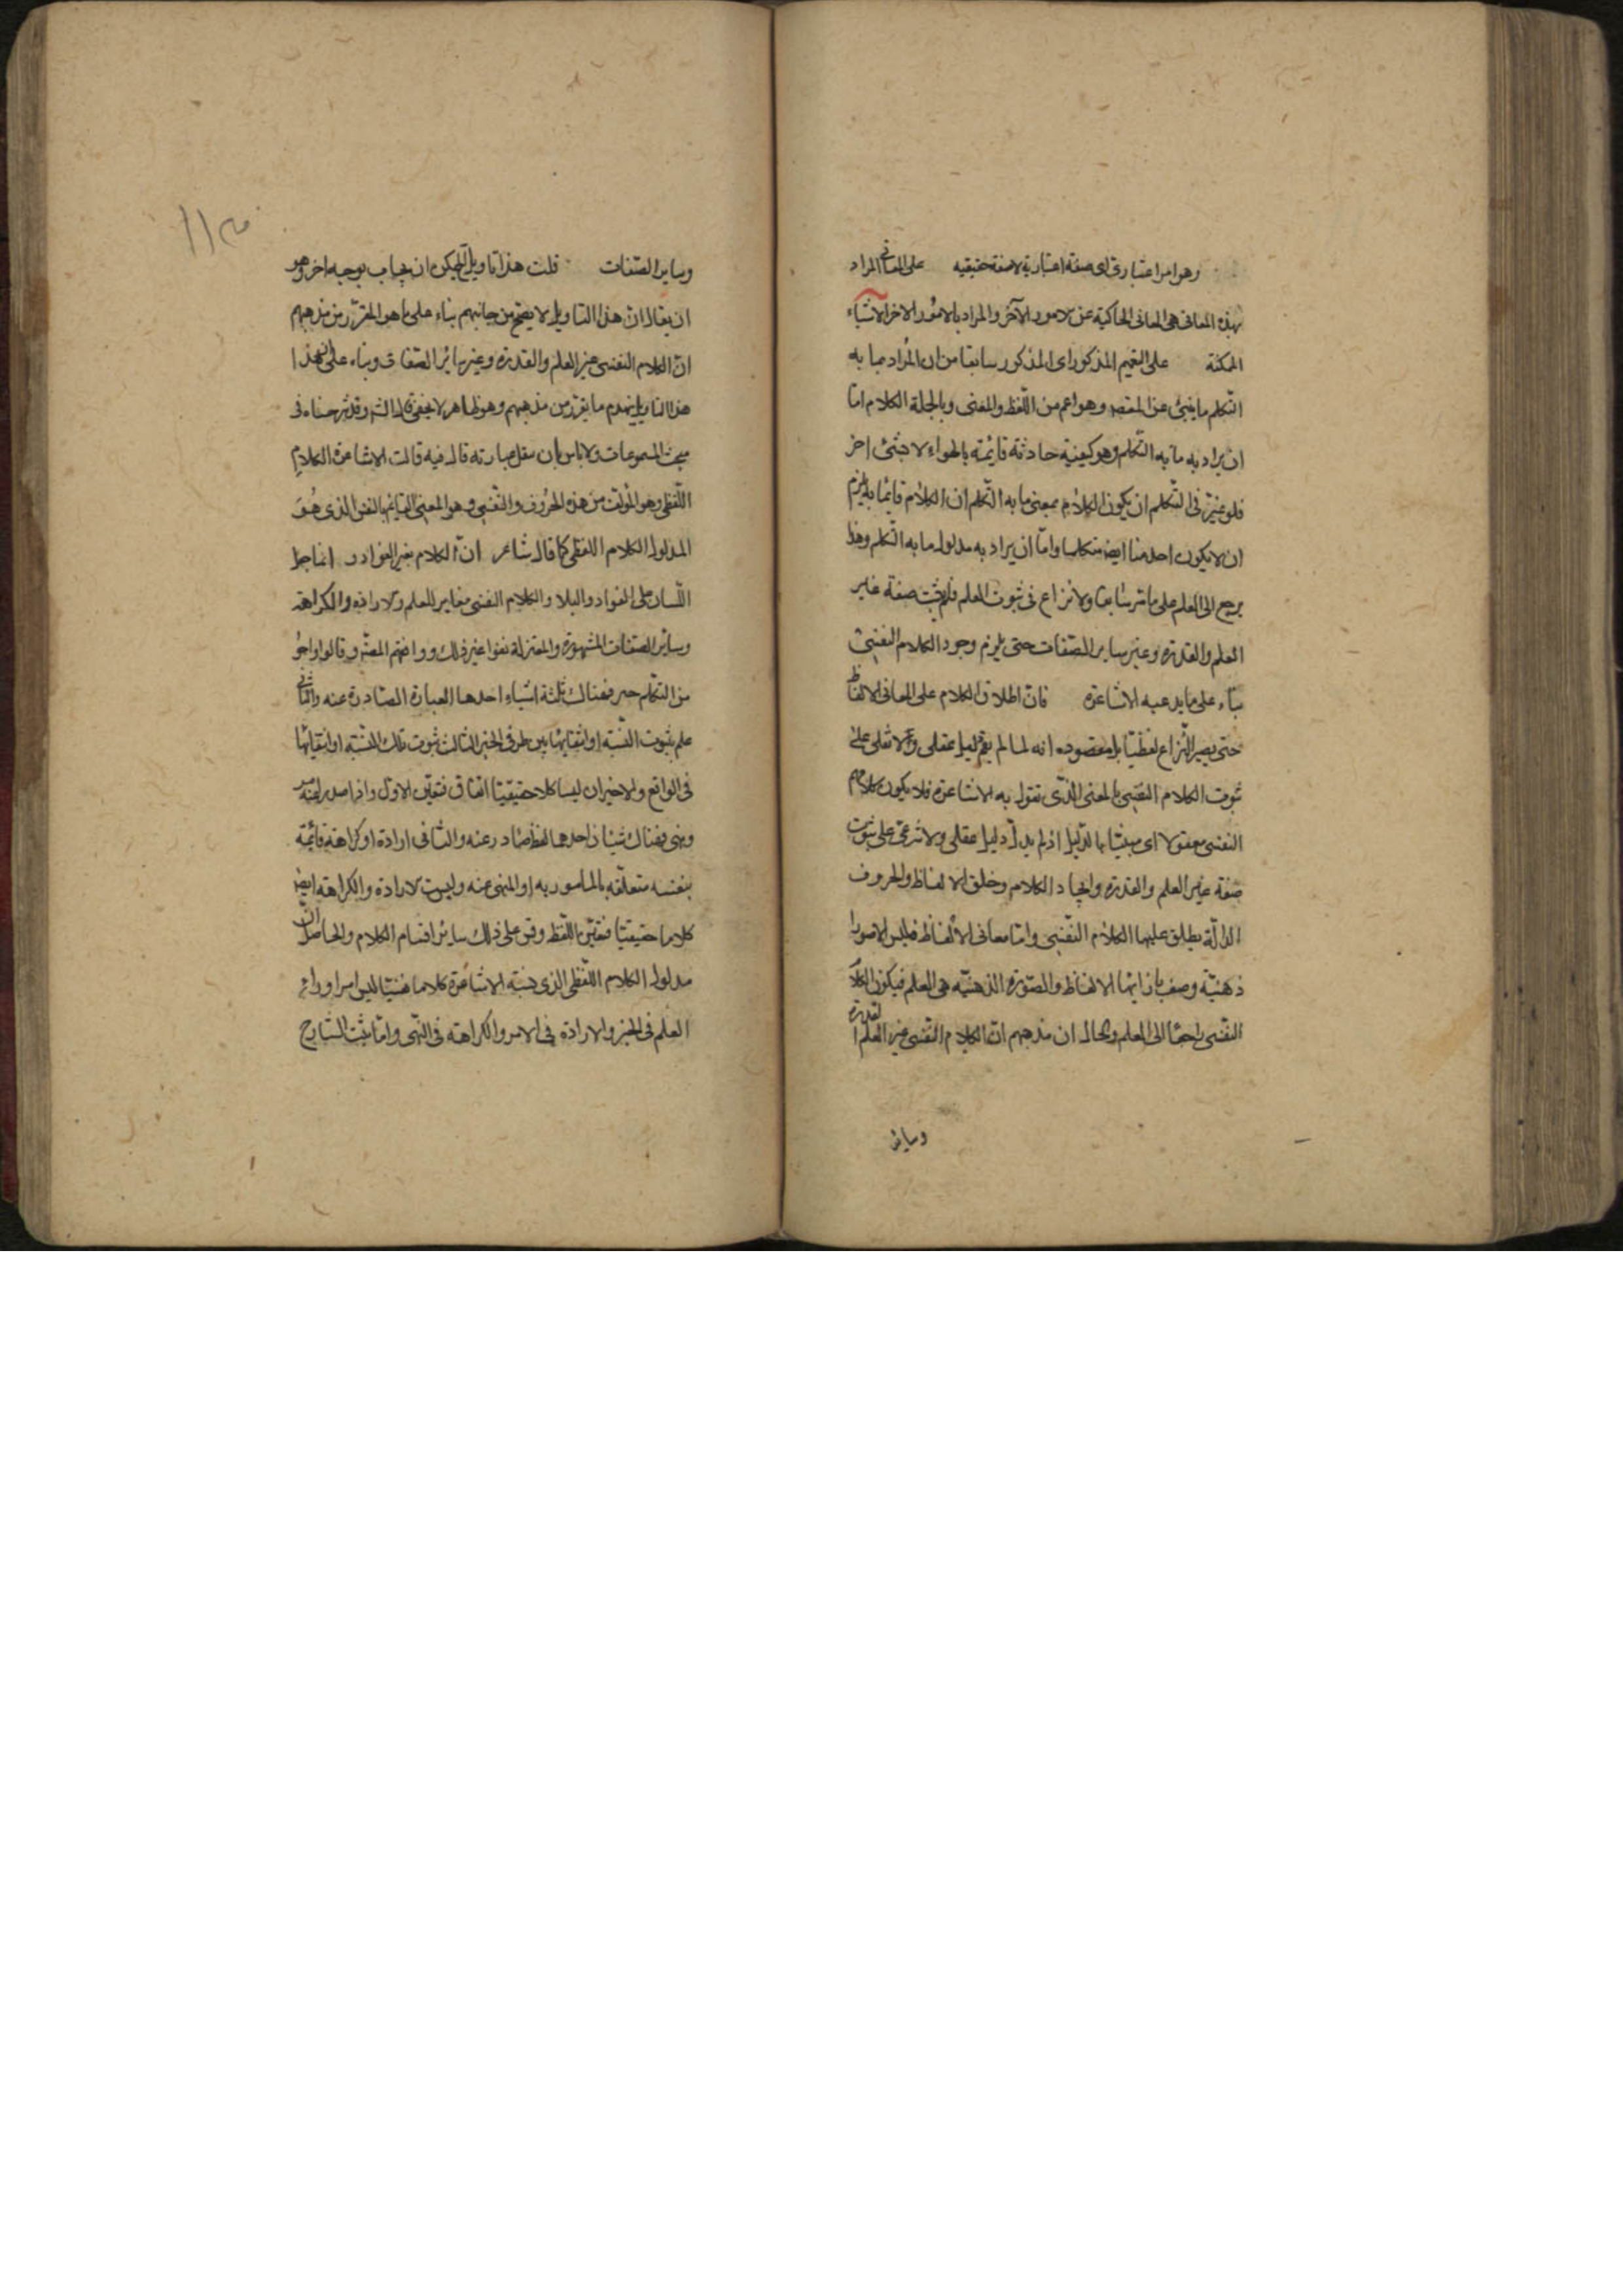 وهو امر اعتباري اى صفة اعتبارية لا صفة حقيقيه على المعانى المراد
بهذه المعانى هى المعانى الحاكية عن الامور الآخر والمراد بالامور الاخر الاشياء
الممكنة على التعميم المذكور اى المذكور سابقا من ان المراد بما به
التكلم ما ينبئ عن المقصد وهو اعم من اللفظ والمعنى وبالجلة الكلام اما
ان يراد به ما به التكلم وهو كيفية حادثة قائمة بالهواء لا بشئ اخر
فلو عتبر فى التكلم ان يكون الكلام بمعنى ما به التكلم ان الكلام قايما به يلزم
ان لا يكون احد منا ايض متكلما واما ان يراد به مدلول ما به التكلم وهذا
يرجع الى العلم على ما مر سابقا ولا نزاع فى ثبوت العلم فلم يثبت صفة غاير
العلم والقدرة وغير ساير الصفات حتى يلزم وجود الكلام النفسى
بناء على ما يدعيه الاشاعرة فان اطلاق الكلام على المعانى الالفاظ
حتى يصير النزاع لفظيا بل مقصوده انه لما لم يقم دليل عقلى ولا نقلى على
ثبوت الكلام النفسى بالمعنى الذى تقول به الاشاعرة فلا يكون كلامهم
النفسى معقولا اى مبينا بالدليل اذ لم يدل دليل عقلى ولا شرعى على ثبوت
صفة غير العلم والقدرة وايجاد الكلام وخلق الالفاظ والحروف
الدالة يطلق عليها الكلام النفسى واما معانى الالفاظ فليس الا صورا
ذهنية وصف بازائها الالفاظ والصورة الذهنية هى العلم فيكون الكلام
النفسى راجعا الى العلم والحال ان مذهبهم ان الكلام النفسى غير العلم القدرة
وساير
وساير الصفات قلت هذا تاويل لكن يمكن ان يجاب بوجه اخر وهو
ان يقال ان هذا التاويل لا يصح من جانبهم بناء على ما هو المقرر من مذهبهم
ان الكلام النفسى غير العلم والقدرة وغير سائر الصفات وبناء على هذا
هذا التاويل ينهدم ما يقرر من مذهبهم وهو ظاهر لا يخفى قال الشه وقد شرحناه فى
مبحث المسموعات ولا باس بان ننقل عبارته قال فيه قالت الاشاعرة الكلام
اللفظى وهو المؤلف من هذه الحروف والنفسى وهو المعنى القايم بالنفس الذى هو
المدلول الكلام اللفظى كما قال شاعر ان الكلام بغير الفؤاد و انما جعل
اللسان على الفواد والبلا والكلام النفسى مغاير للعلم والارادة والكراهة
وسائر الصفات المشهورة والمعتزلة نفوا غير ذلك ووافقهم المصه وقالوا اذا
من التكلم خبر فهناك ثلثة اشياء احدها العبارة الصادرة عنه والثانى
علم بثبوت النسبة او انتفائها بين طرفى الخبر الثالث ثبوت تلك النسبة او انتفائها
فى الواقع والاخيران ليسا كلا حقيقيا اتفاق فتعين الاول واذا صدر عنه امر
ونهى فهناك شيئان احدهما لفظ صادر عنه والثانى ارادة او كراهة قائمة
بنفسه متعلقه بالمامور به او المنهى عنه وليست الارادة والكراهة ايض
كلاما حقيقيا فتعين اللفظ وقس على ذلك سائر اقسام الكلام والحاصل ان
مدلول الكلام اللفظى الذى يسميه الاشاعرة كلاما نفسيا ليس امرا وراء
العلم فى الخبر والارادة فى الامر والكراهة فى النهى واما بيت الشارح